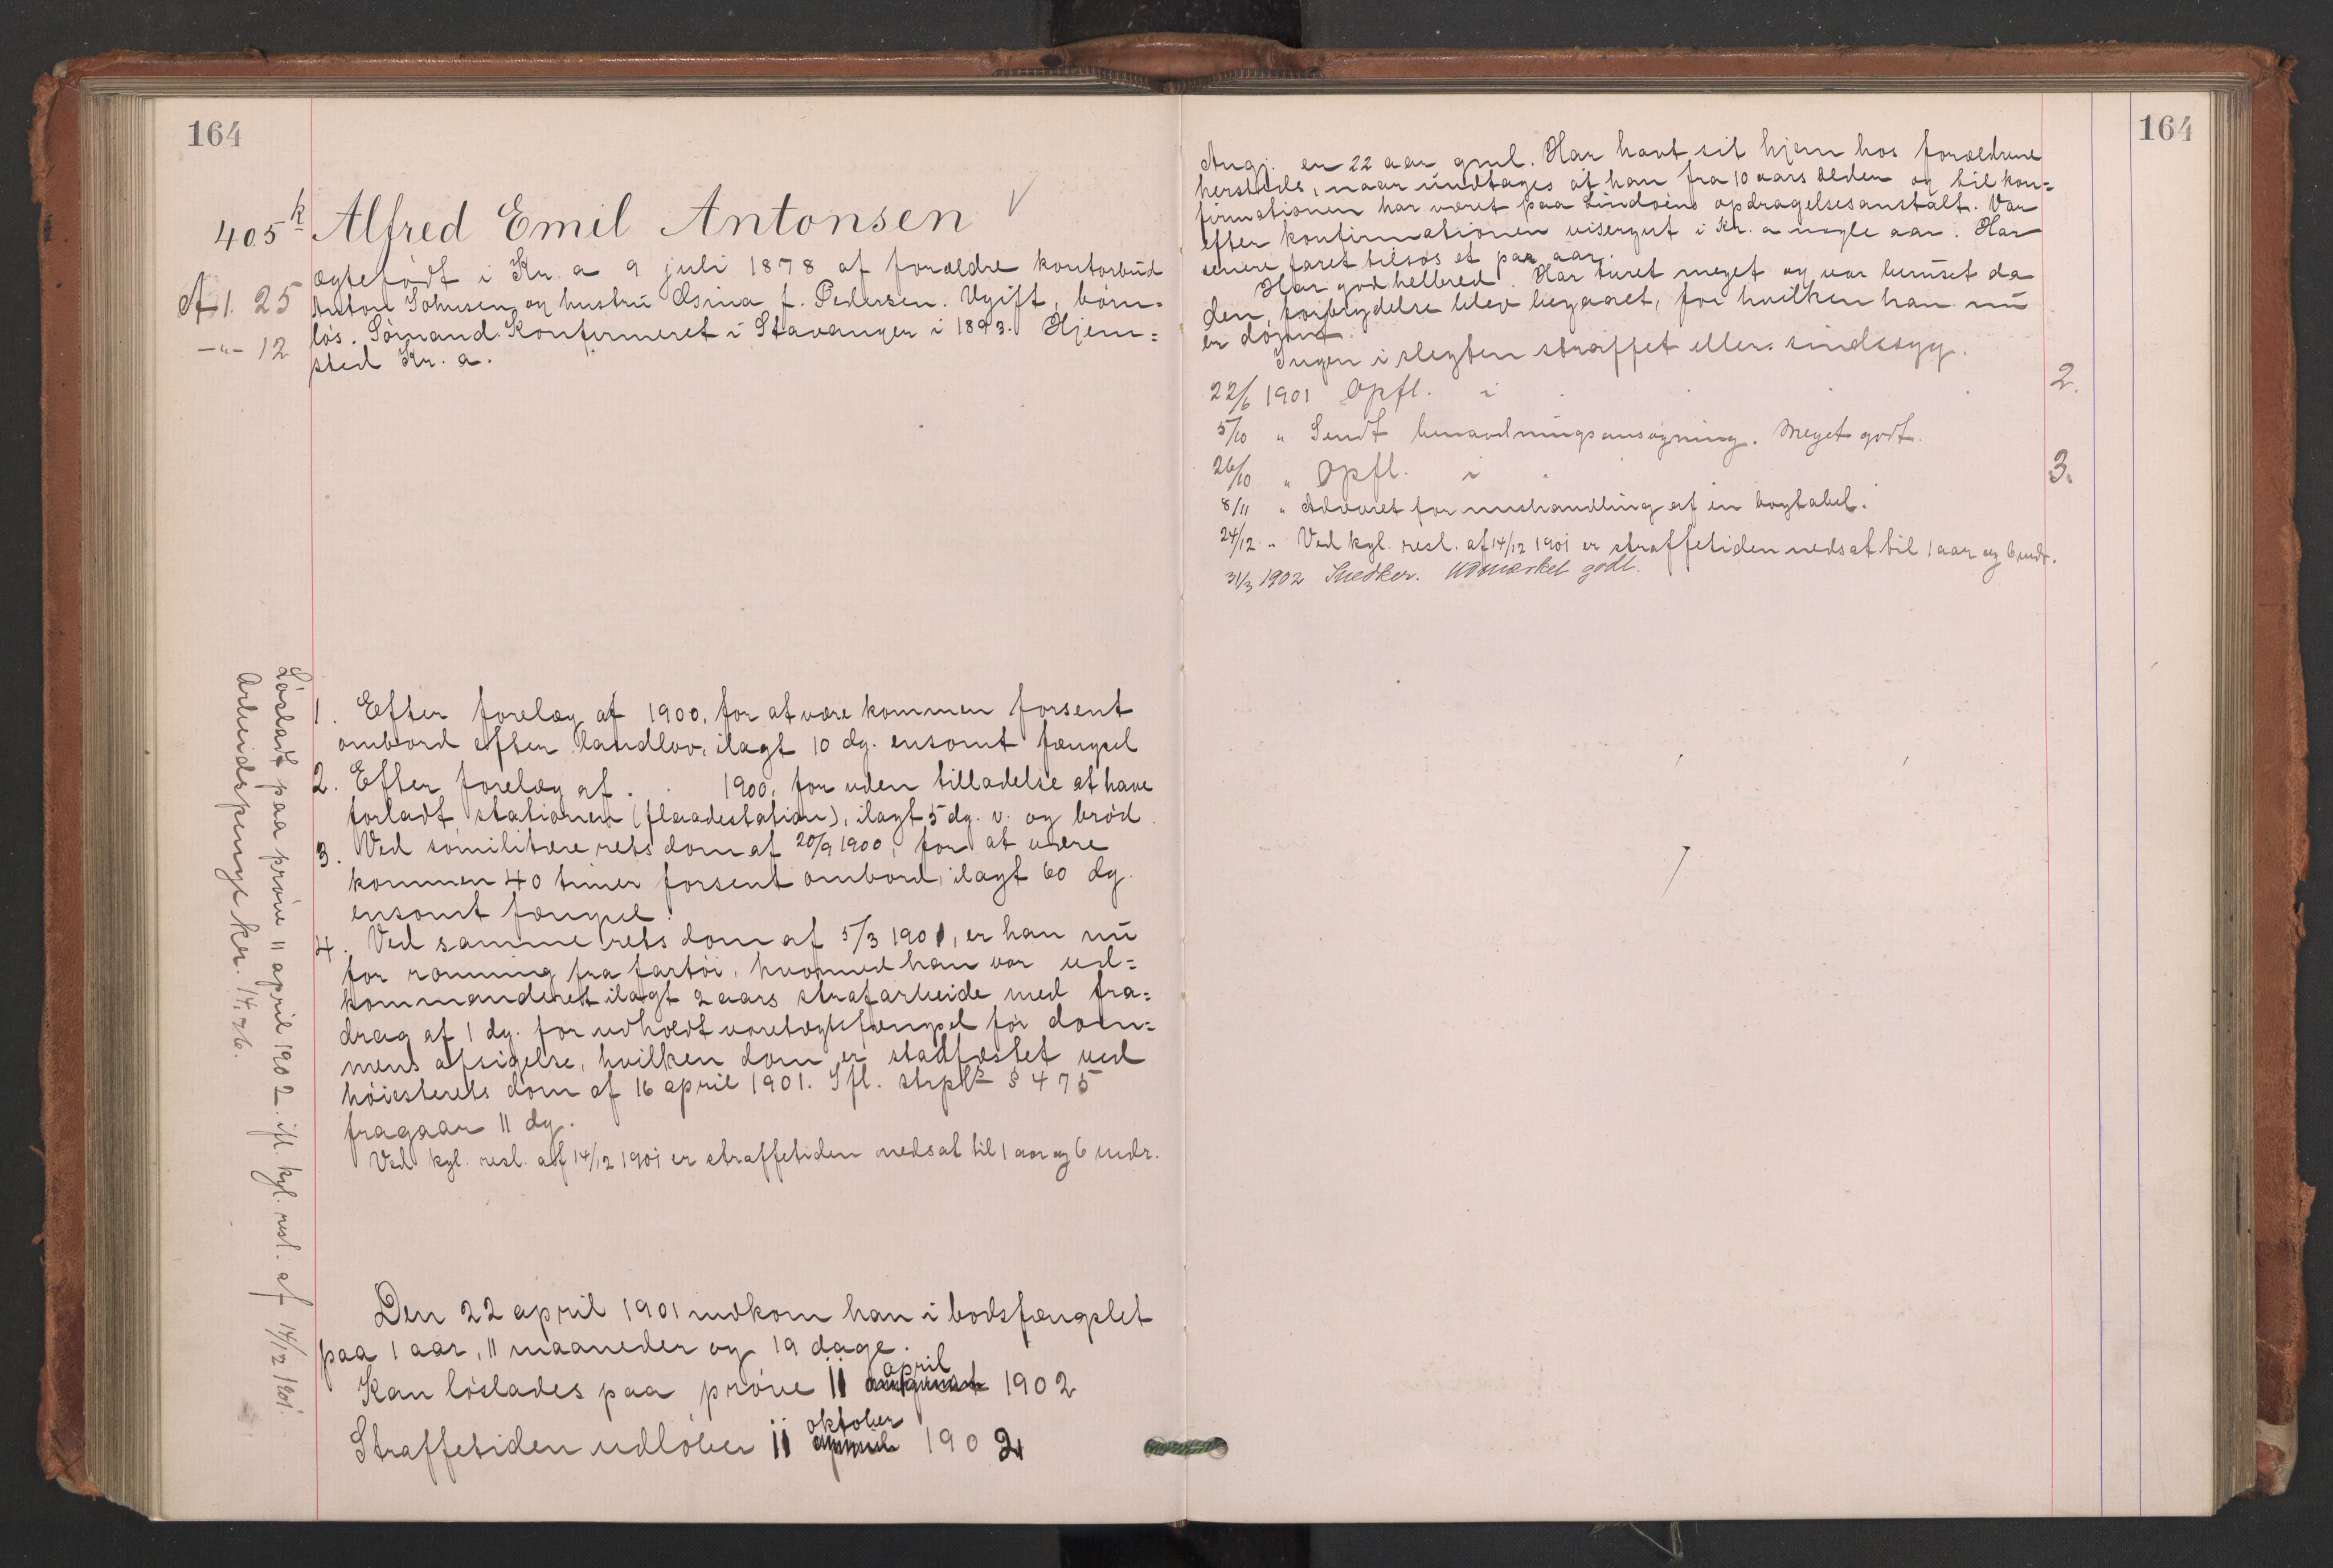 164
405 k Alfred Emil Antonsen
A 1. 25
-"- 12
ægtefødt i Kr. a 9 juli 1878 af forældre kontorbud
Anton Johnsen og hustru Osina f. Pedersen. Ugift, børn=
løs. Sømand. Konfirmeret i Stavanger i 1893. Hjem=
sted Kr. a.
1. Efter forelæg af 1900, for at være kommen forsent
ombord efter landlov, ilagt 10 dg. ensomt fængsel
2. Efter forelæg af . . 1900, for uden tilladelse at have
forladt stationen (flaadestation), ilagt 5 dg. v. og brød.
3. Ved sømilitære rets dom af 20/9 1900, for at være
kommen 40 timer forsent ombord, ilagt 60 dg.
ensomt fængsel.
4. Ved samme rets dom af 5/3 1901, er han nu
for rømning fra fartøi, hvormed han var ud=
kommanderet ilagt 2 aars strafarbeide med fra=
drag af 1 dg. for udholdt varetægtsfængsel før dom=
mens afsigelse, hvilken dom er stadfæstet ved
høiesterets dom af 16 april 1901. Ifl. strpl § 475
fragaar 11 dg.
Ved kgl. resl. af 14/12 1901 er straffetiden nedsat til 1 aar og 6 mdr.
Den 22 april 1901 indkom han i bodsfængslet
paa 1 aar, 11 maaneder og 19 dage.
Kan løslades paa prøve 11 august april 1902
Straffetiden udløber 11 april oktober 1902
Løsladt paa prøve 11 april 1902 ifl. kgl. resl. af 14/12 1901.
Arbeidspenge kr. 14.76.
164
Angj. er 22 aar gml. Har havt sit hjem hos forældrene
hersteds, naar undtages at han fra 10 aars alderen og til kon=
firmationen har været paa Lindøens opdragelsesanstalt. Var
efter konfirmationen visergut i Kr. a nogle aar. Har
senere faret tilsøs et par aar.
Har god helbred. Har turet meget og var beruset da
den forbrydelse blev begaaet, for hvilken han nu
er dømt.
Ingen i slegten straffet eller sindssyg.
22/6 1901 Opfl. i 2.
5/10 " Sendt benaadningsansøgning. Meget godt.
26/10 " Opfl. i 3.
8/11 " Advaret for mishandling af en bogtabel.
24/12 " Ved kgl. resl. af 14/12 1901 er straffetiden nedsat til 1 aar og 6 mdr.
31/3 1902 Snedker. Udmærket godt.